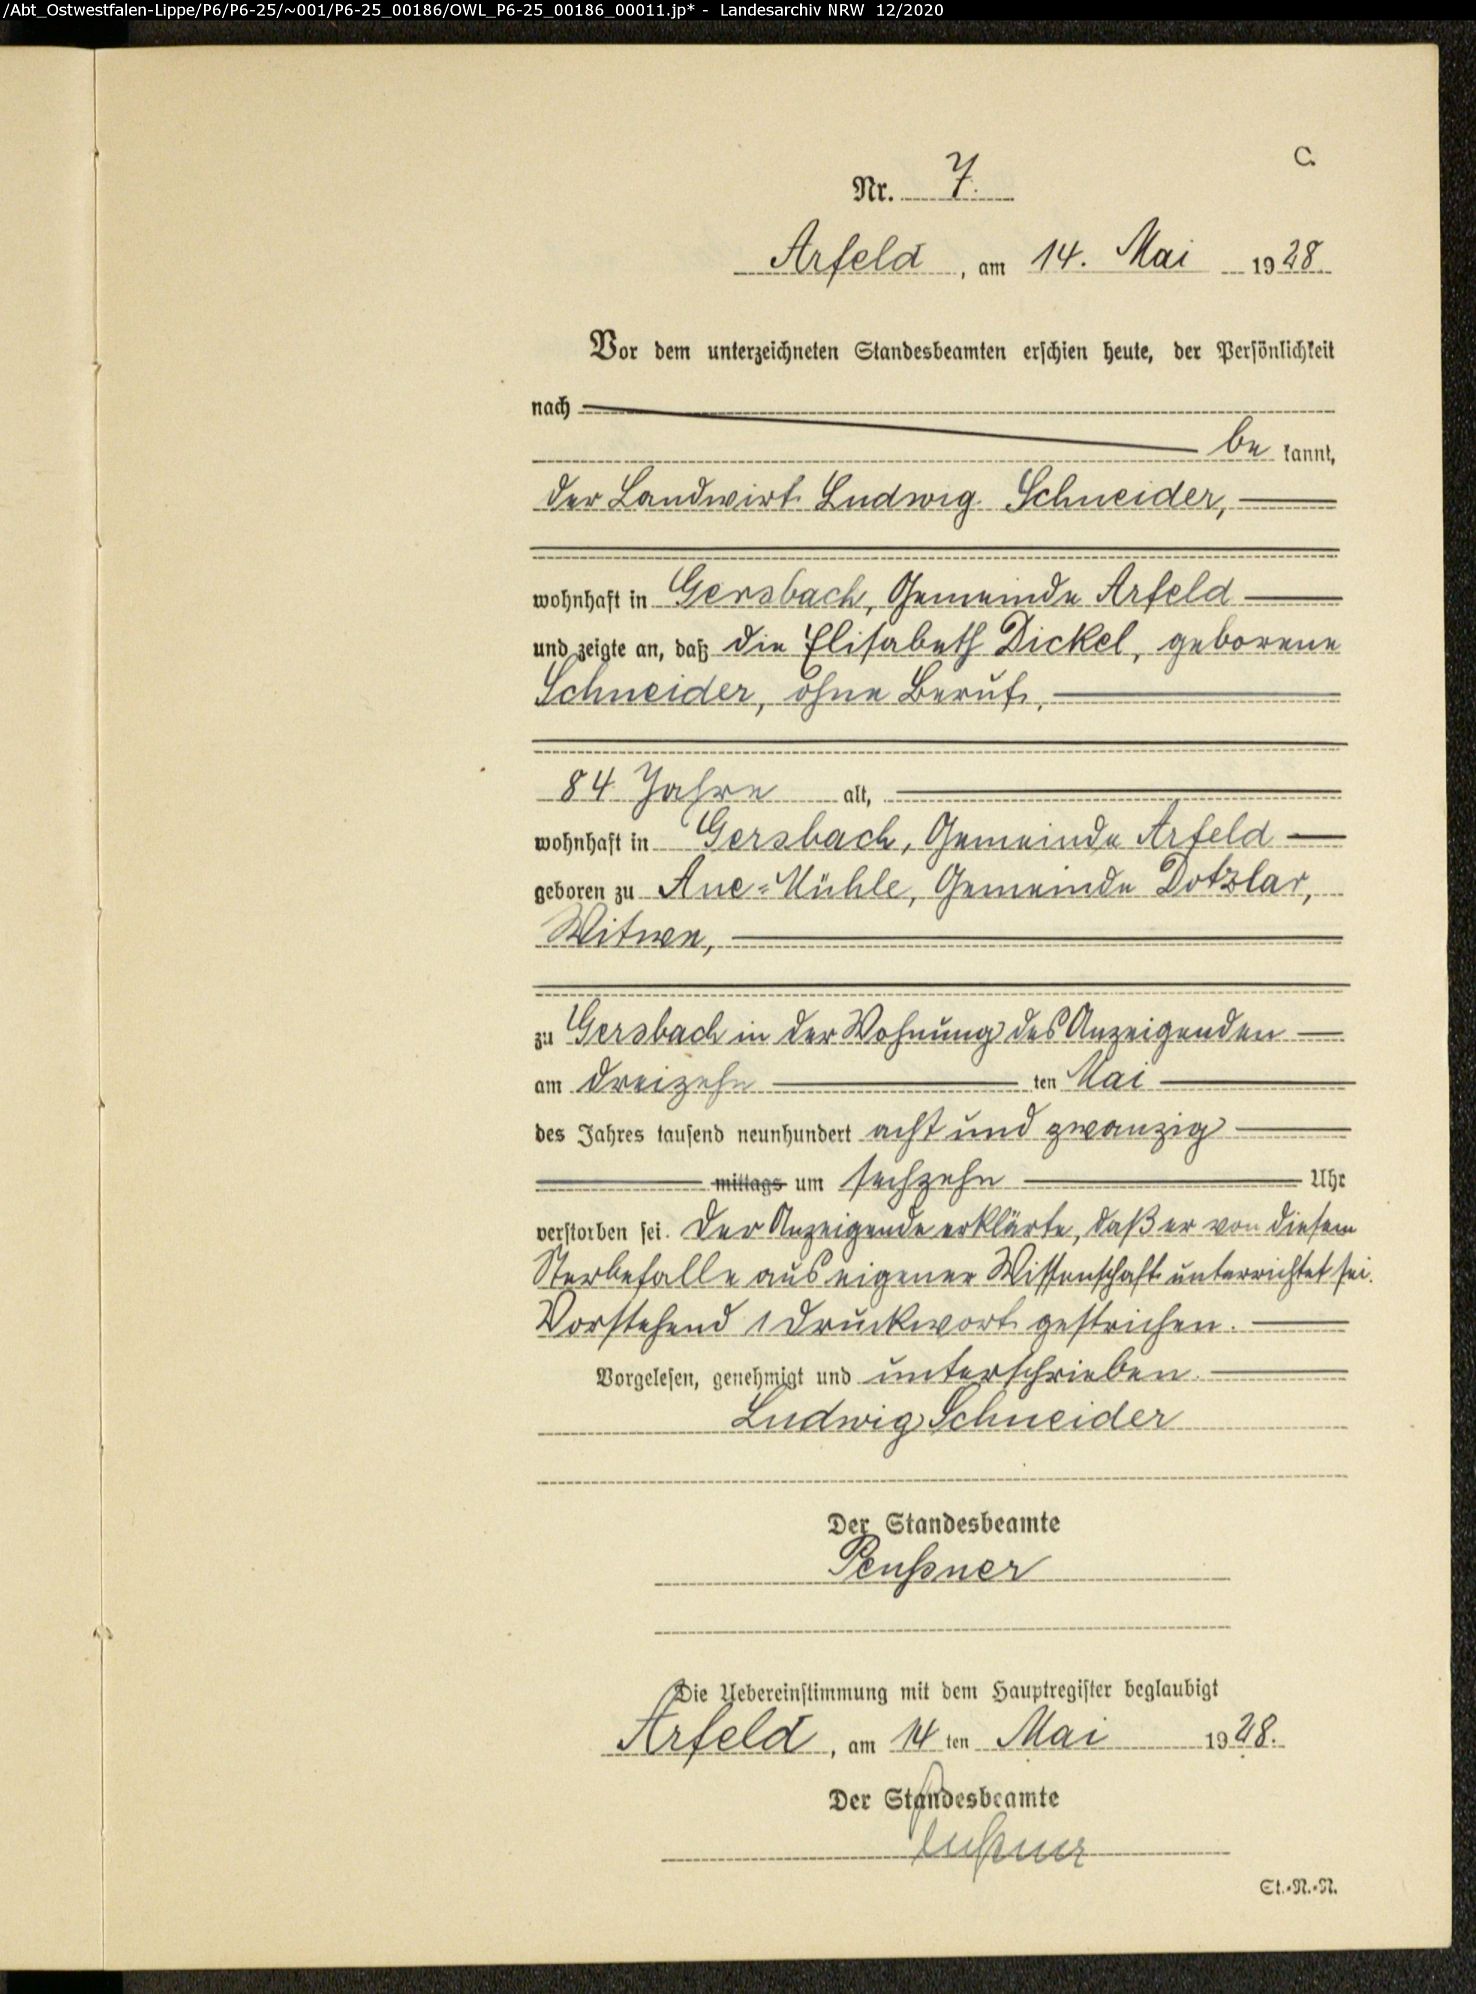 /Abt_Ostwestfalen-Lippe/P6/P6-25/~001/P6-25_00186/OWL_P6-25_00186_00011.jp* - Landesarchiv NRW 12/2020
C.
Nr. 7.
Arfeld, am 14. Mai 1928
Vor dem unterzeichneten Standesbeamten erschien heute, der Persönlichkeit
nach
be kannt,
der Landwirt Ludwig Schneider,
wohnhaft in Gersbach, Gemeinde Arfeld
und zeigte an, daß die Elisabeth Dickel, geborene
Schneider, ohne Beruf,
84 Jahre alt,
wohnhaft in Gersbach, Gemeinde Arfeld
geboren zu Aue-Mühle, Gemeinde Dotzlar,
Witwe,
zu Gersbach in der Wohnung des Anzeigenden
am dreizehn ten Mai
des Jahres tausend neunhundert acht und zwanzig
mittags um sechzehn Uhr
verstorben sei. Der Anzeigende erklärte, daß er von diesem
Sterbefalle aus eigener Wissenschaft unterrichtet sei.
Vorstehend 1 Druckwort gestrichen.
Vorgelesen, genehmigt und unterschrieben.
Ludwig Schneider
Der Standesbeamte
Peußner
Die Uebereinstimmung mit dem Hauptregister beglaubigt
Arfeld, am 14 ten Mai 1928.
Der Standesbeamte
Peußner
St.-N.-N.